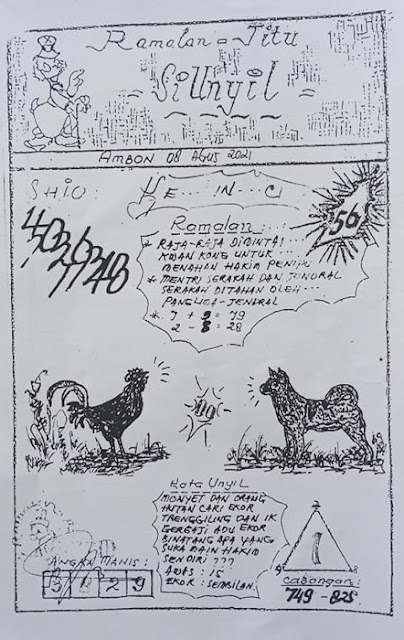 Ramalan = Jitu
= SiUnyil =
AMBON 08 AGUS 2021
SHIO
HE... IN... CI
56
Ramalan
* RAJA-RAJA DIMINTAI
KWAN KONG UNTUK
MENAHAN HAKIM PENIPU
* MENTRI SERAKAH DAN JENDRAL
SERAKAH DITAHAN OLEH
PANGLIMA-JENDRAL
* 7 + 9 = 79
2 - 8 = 28
Kata Unyil
MONYET DAN ORANG
HUTAN CARI EKOR
TRENGGILING DAN IK
GERGAJI ADU EKOR
BINATANG APA YANG
SUKA MAIN HAKIM
SENDIRI ???
AWAS : 15
EKOR : SEMBILAN
ANGKA MANIS :
2 9
1
CABANGAN :
749 - 825